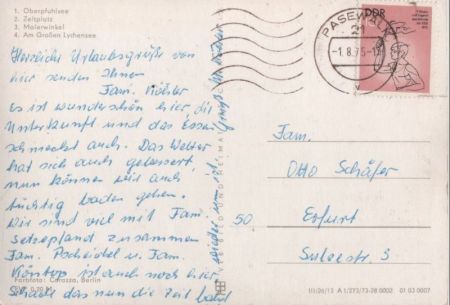 1. Oberpfuhlsee
2. Zeltplatz
3. Malerwinkel
4. Am Großen Lychensee
Herzliche Urlaubsgrüße von
hier senden Ihnen
Fam. Köhler
Es ist wunderschön hier, die
Unterkunft und das Essen
schmeckt auch. Das Wetter
hat sich auch gebessert,
nun können wir auch
tüchtig baden gehen.
Wir sind viel mit Fam.
Setzepfand zusammen
Fam. Pscheidel u. Fam.
ist auch noch hier
Schade das nun die Zeit bald
wieder um ist
PASEWALK
21
-1.8.75-
DDR
Fam.
Otto Schäfer
50 Erfurt
Farbfoto: Carozza, Berlin
III/26/13 A 1/273/73-28 0002 01 03 0007